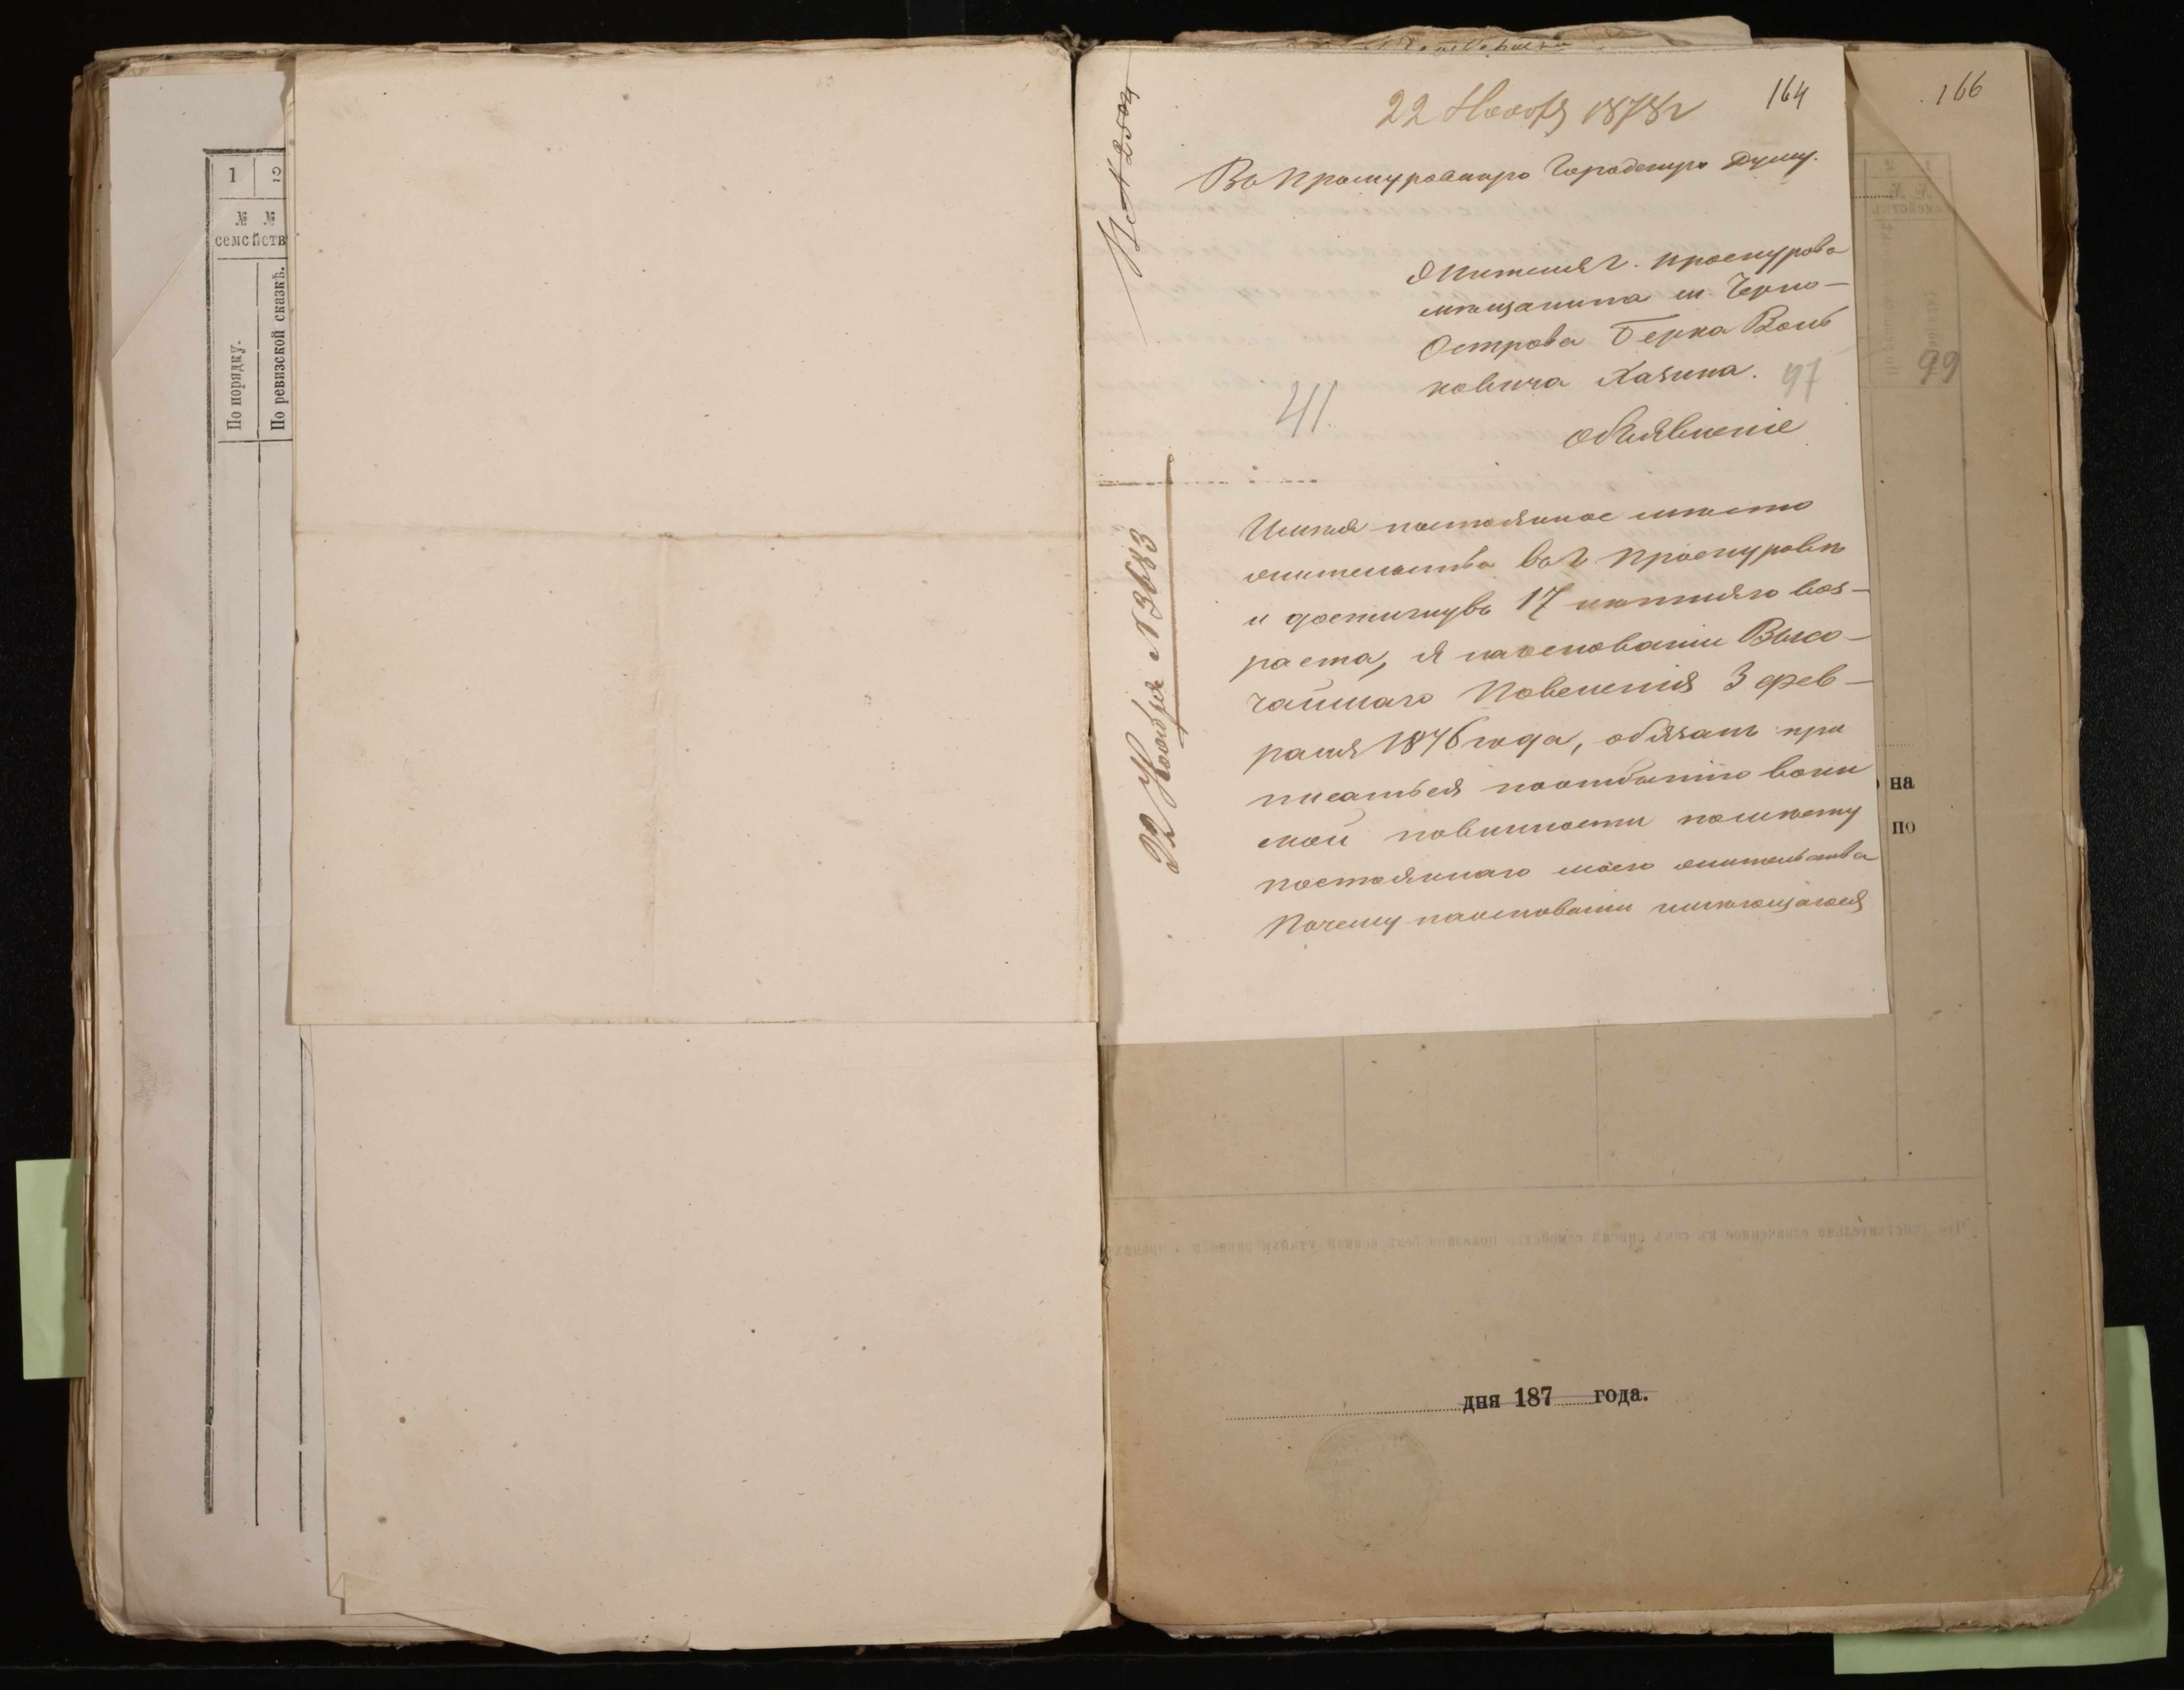 1 2
№ №
семействъ
По порядку.
По ревизской сказкѣ.
164
166
22 Ноября 1878 г
Въ Проскуровскую Городскую Думу.
Жителя г. Проскурова
мѣщанина м. Черно-
Острова Берка Воль
ковича Хазина.
97
99
41
Объявленіе
22 Ноября № 3683
Имѣя постоянное мѣсто
жительства въ г Проскуровѣ
и достигнувъ 17 лѣтняго воз-
раста, я на основаніи Высо-
чайшаго Повеленія 3 фев-
раля 1876 года, обязанъ при
писаться по отбытію воин
ской повинности по мѣсту
постояннаго моего жительства
Почему на основаніи имѣющагося
на
по
дня 187 года.